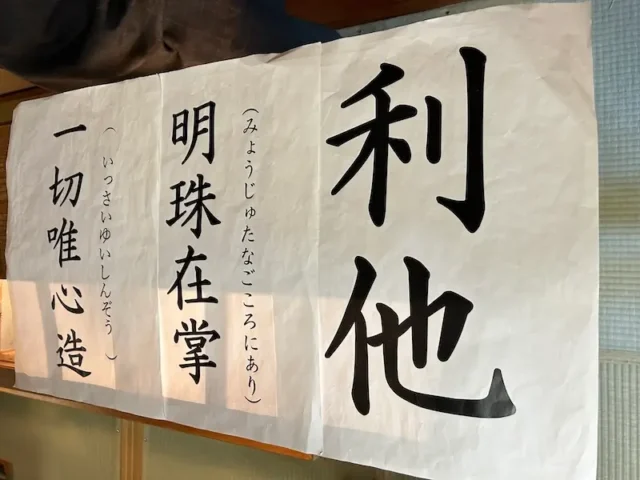 利他
(みょうじゅたなごころにあり)
明珠在掌
(いっさいゆいしんぞう)
一切唯心造